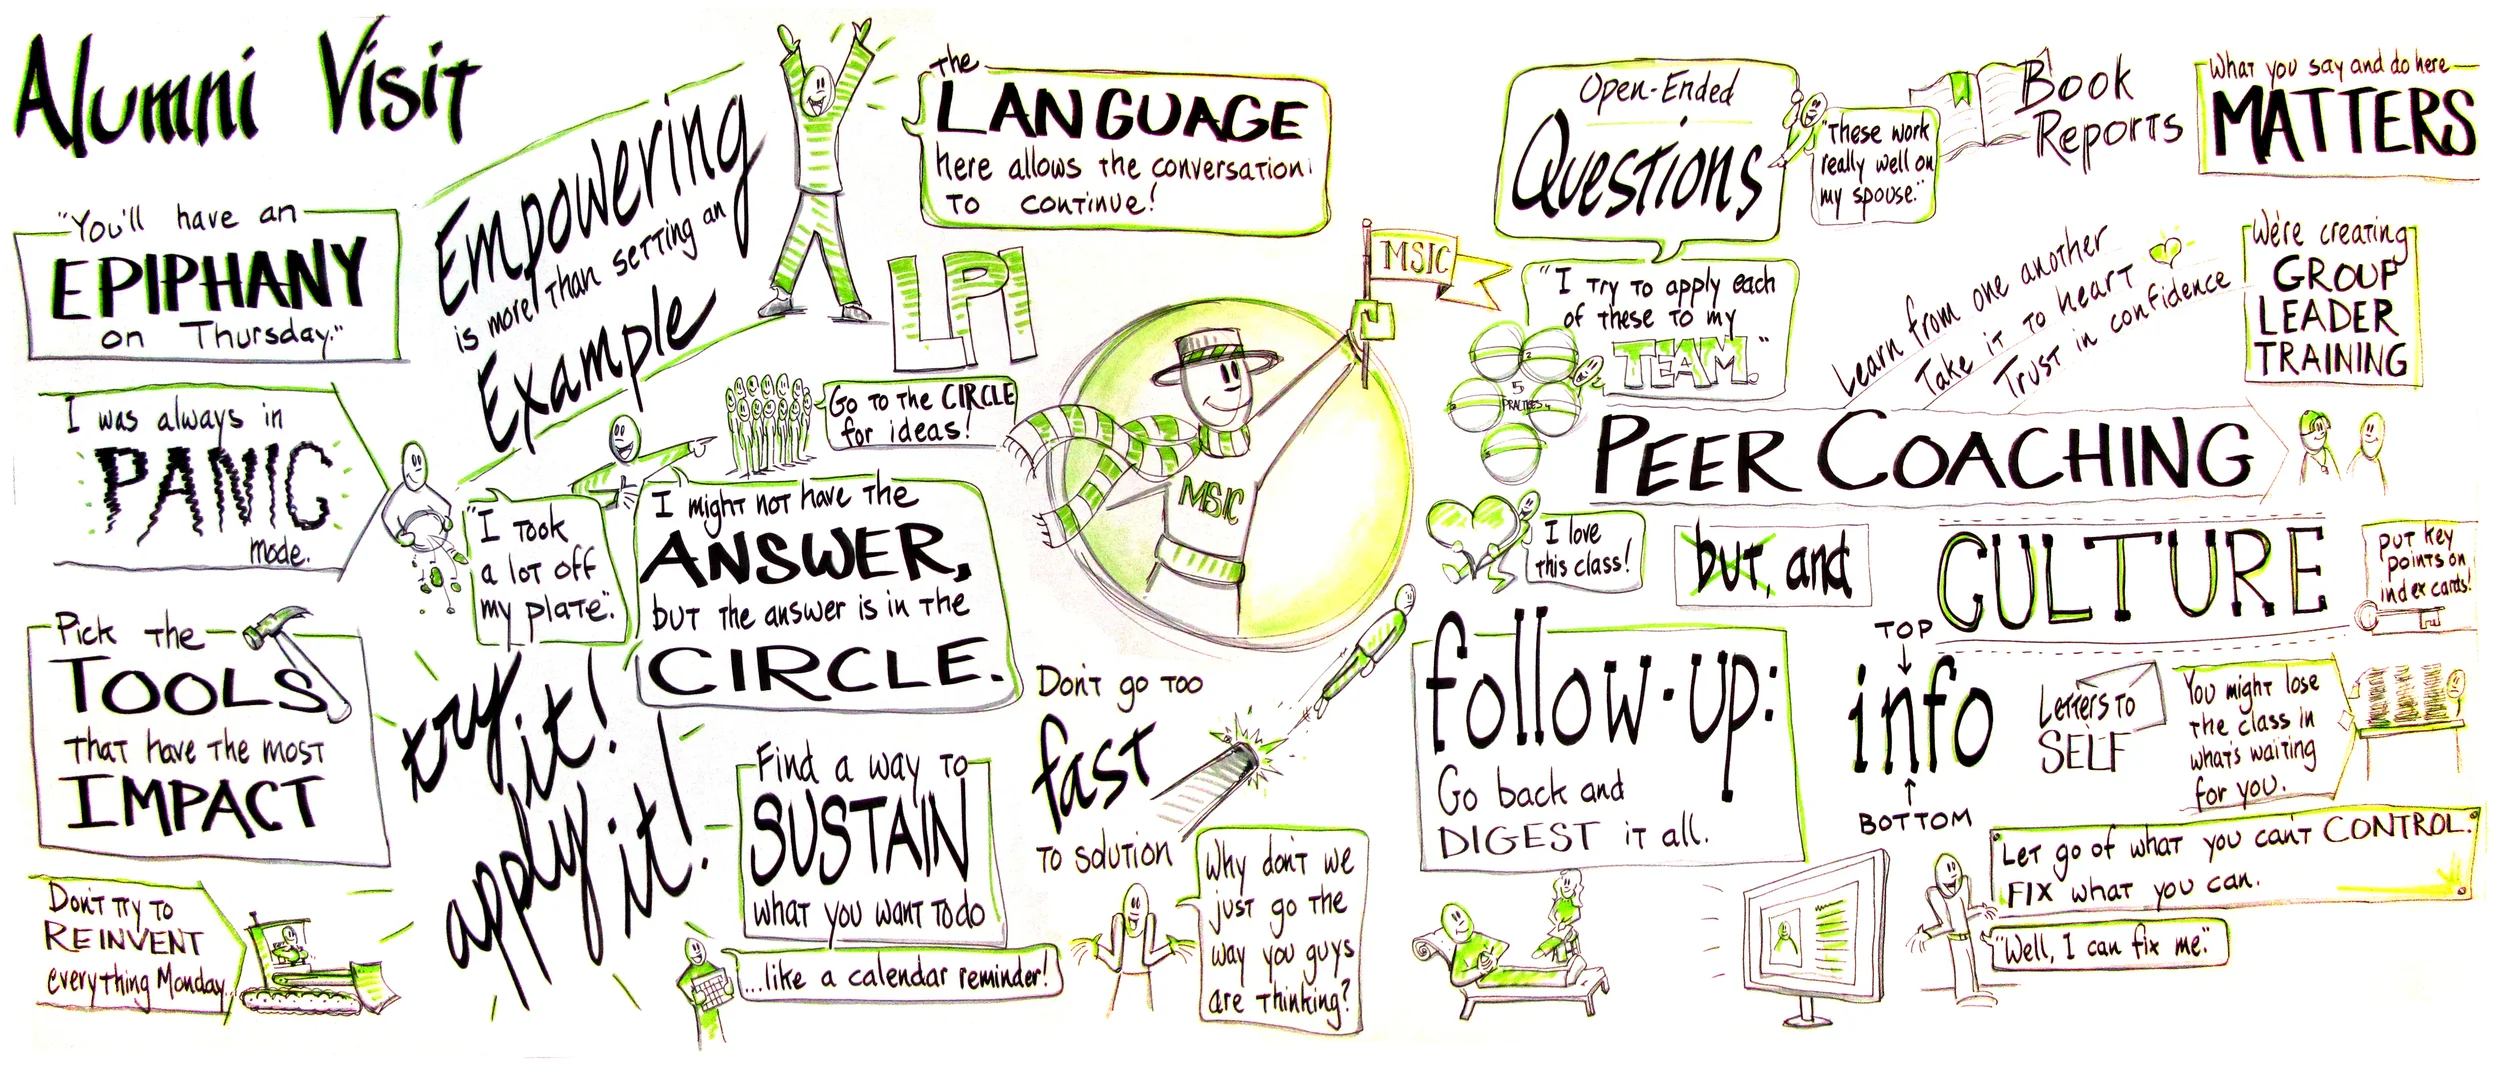 Alumni Visit
"You'll have an
EPIPHANY
on Thursday."
I was always in
PANIC
mode.
"I took
a lot off
my plate."
Pick the
TOOLS
that have the most
IMPACT
Don't try to
REINVENT
everything Monday...
Empowering
is more than setting an
Example
the
LANGUAGE
here allows the conversation
to continue!
LPI
Go to the CIRCLE
for ideas!
I might not have the
ANSWER,
but the answer is in the
CIRCLE.
try it!
apply it!
Find a way to
SUSTAIN
what you want to do
...like a calendar reminder!
MSIC
MSIC
Don't go too
fast
to solution
Why don't we
just go the
way you guys
are thinking?
Open-Ended
Questions
"These work
really well on
my spouse."
"I try to apply each
of these to my
TEAM."
2
5
PRACTICES
Book
Reports
What you say and do here
MATTERS
Learn from one another
Take it to heart
Trust in confidence
We're creating
GROUP
LEADER
TRAINING
PEER COACHING
I love
this class!
but, and
CULTURE
put key
points on
index cards!
follow-up:
Go back and
DIGEST it all.
TOP
info
BOTTOM
Letters to
SELF
You might lose
the class in
what's waiting
for you.
Let go of what you can't CONTROL.
FIX what you can.
"Well, I can fix me."